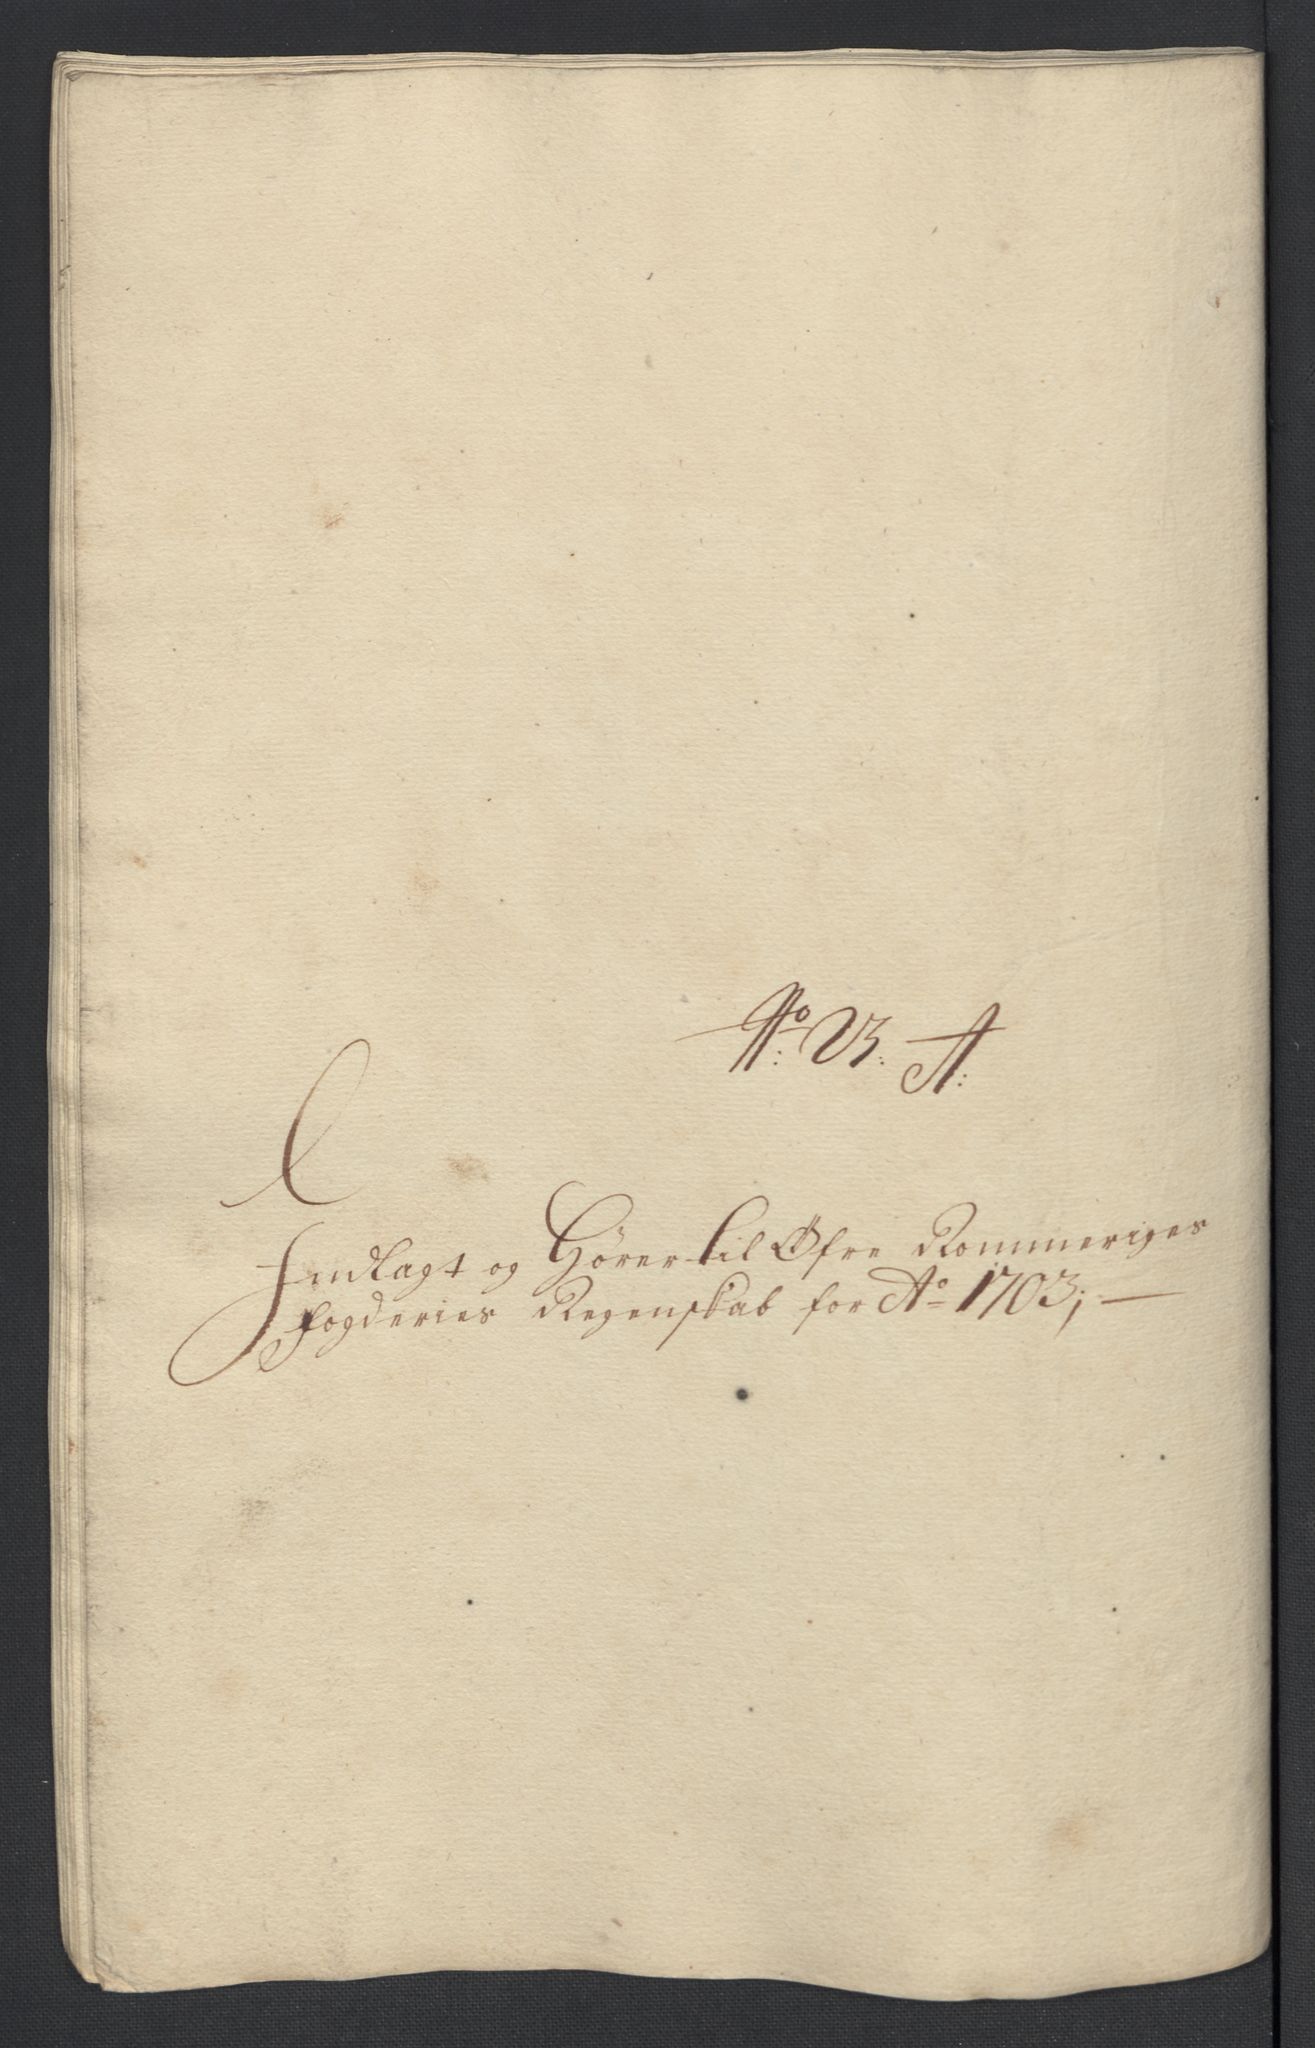 No: 23: A:
Indlagt og Hörer til Öfre Rommeriges
fogderies Regenskab for Ao 1703;